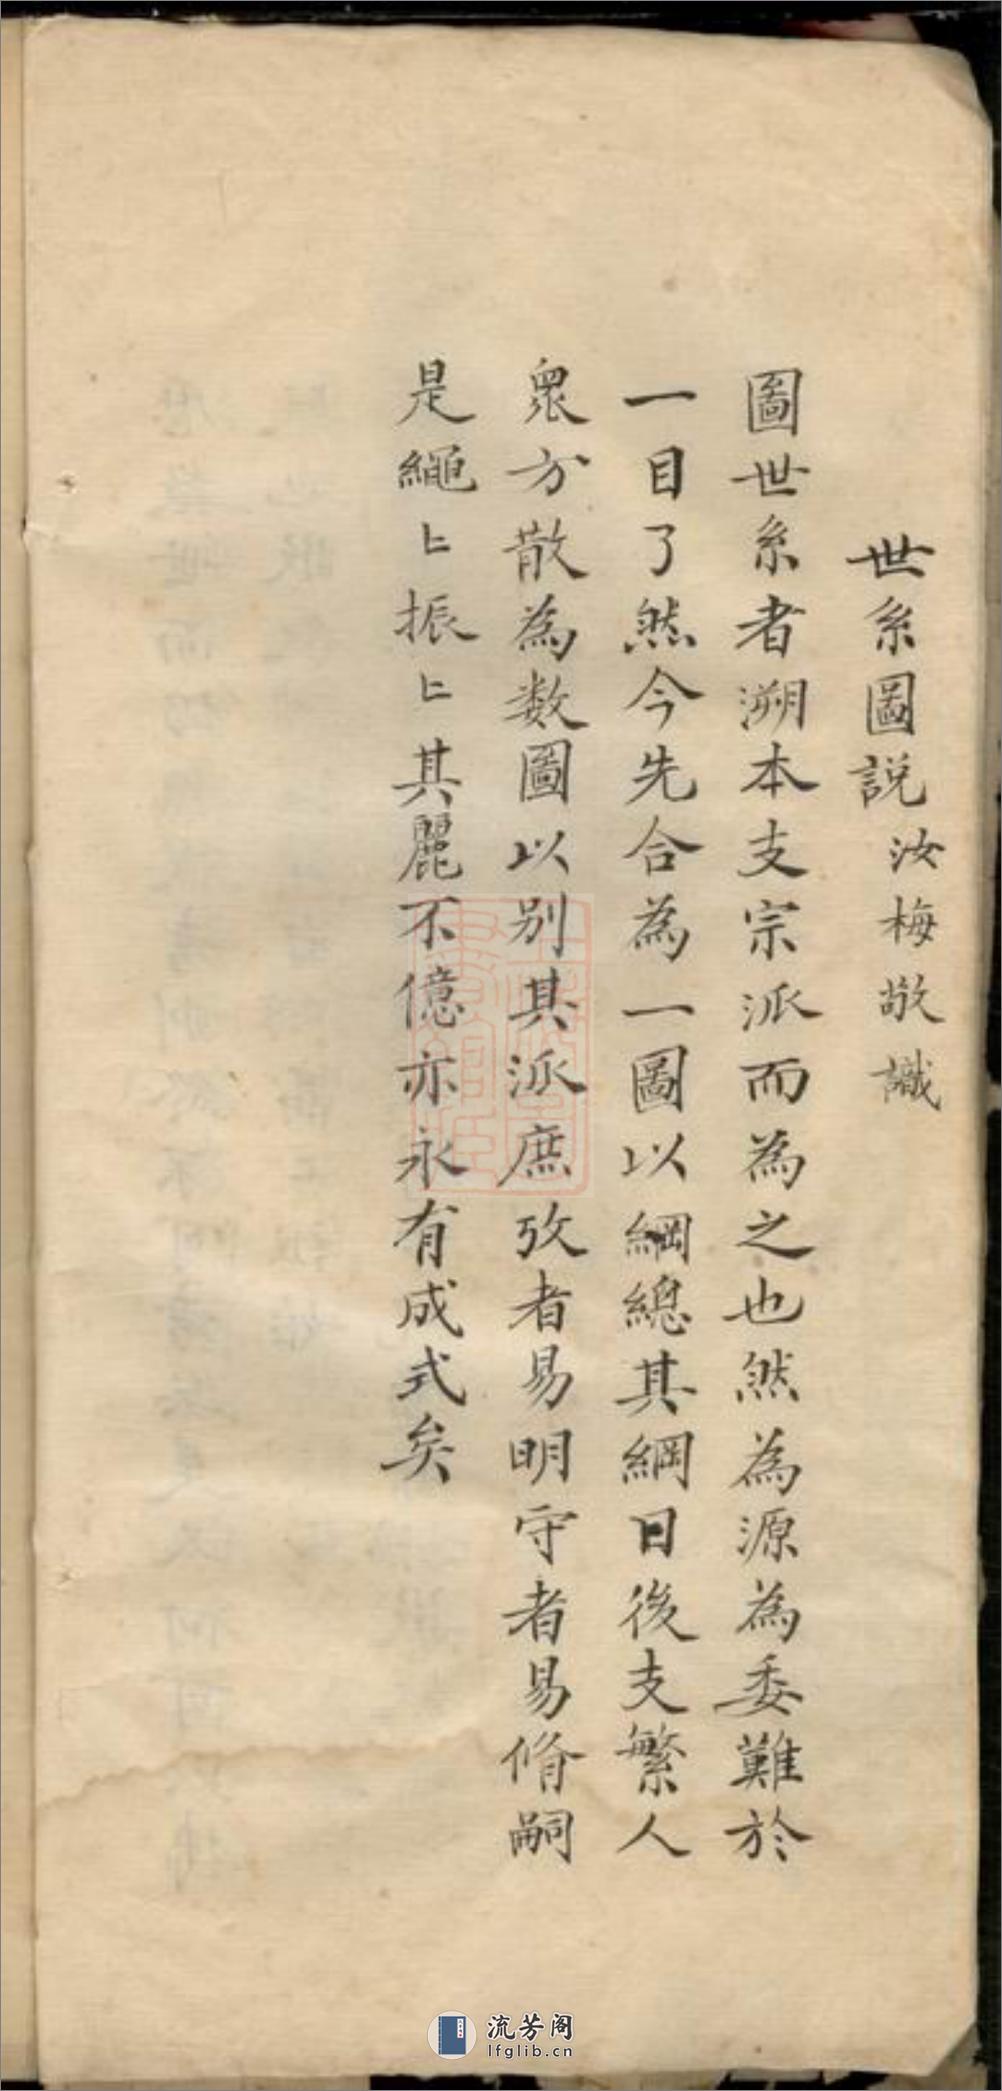 世系圖説 汝梅敬識
圖世系者溯本支宗派而為之也然為源為委難於
一目了然今先合為一圖以綱總其綱日後支繁人
衆方散為数圖以别其派庶攷者易明守者易脩嗣
是繩〻振〻其麗不億亦永有成式矣
流芳阁
lfglib.cn